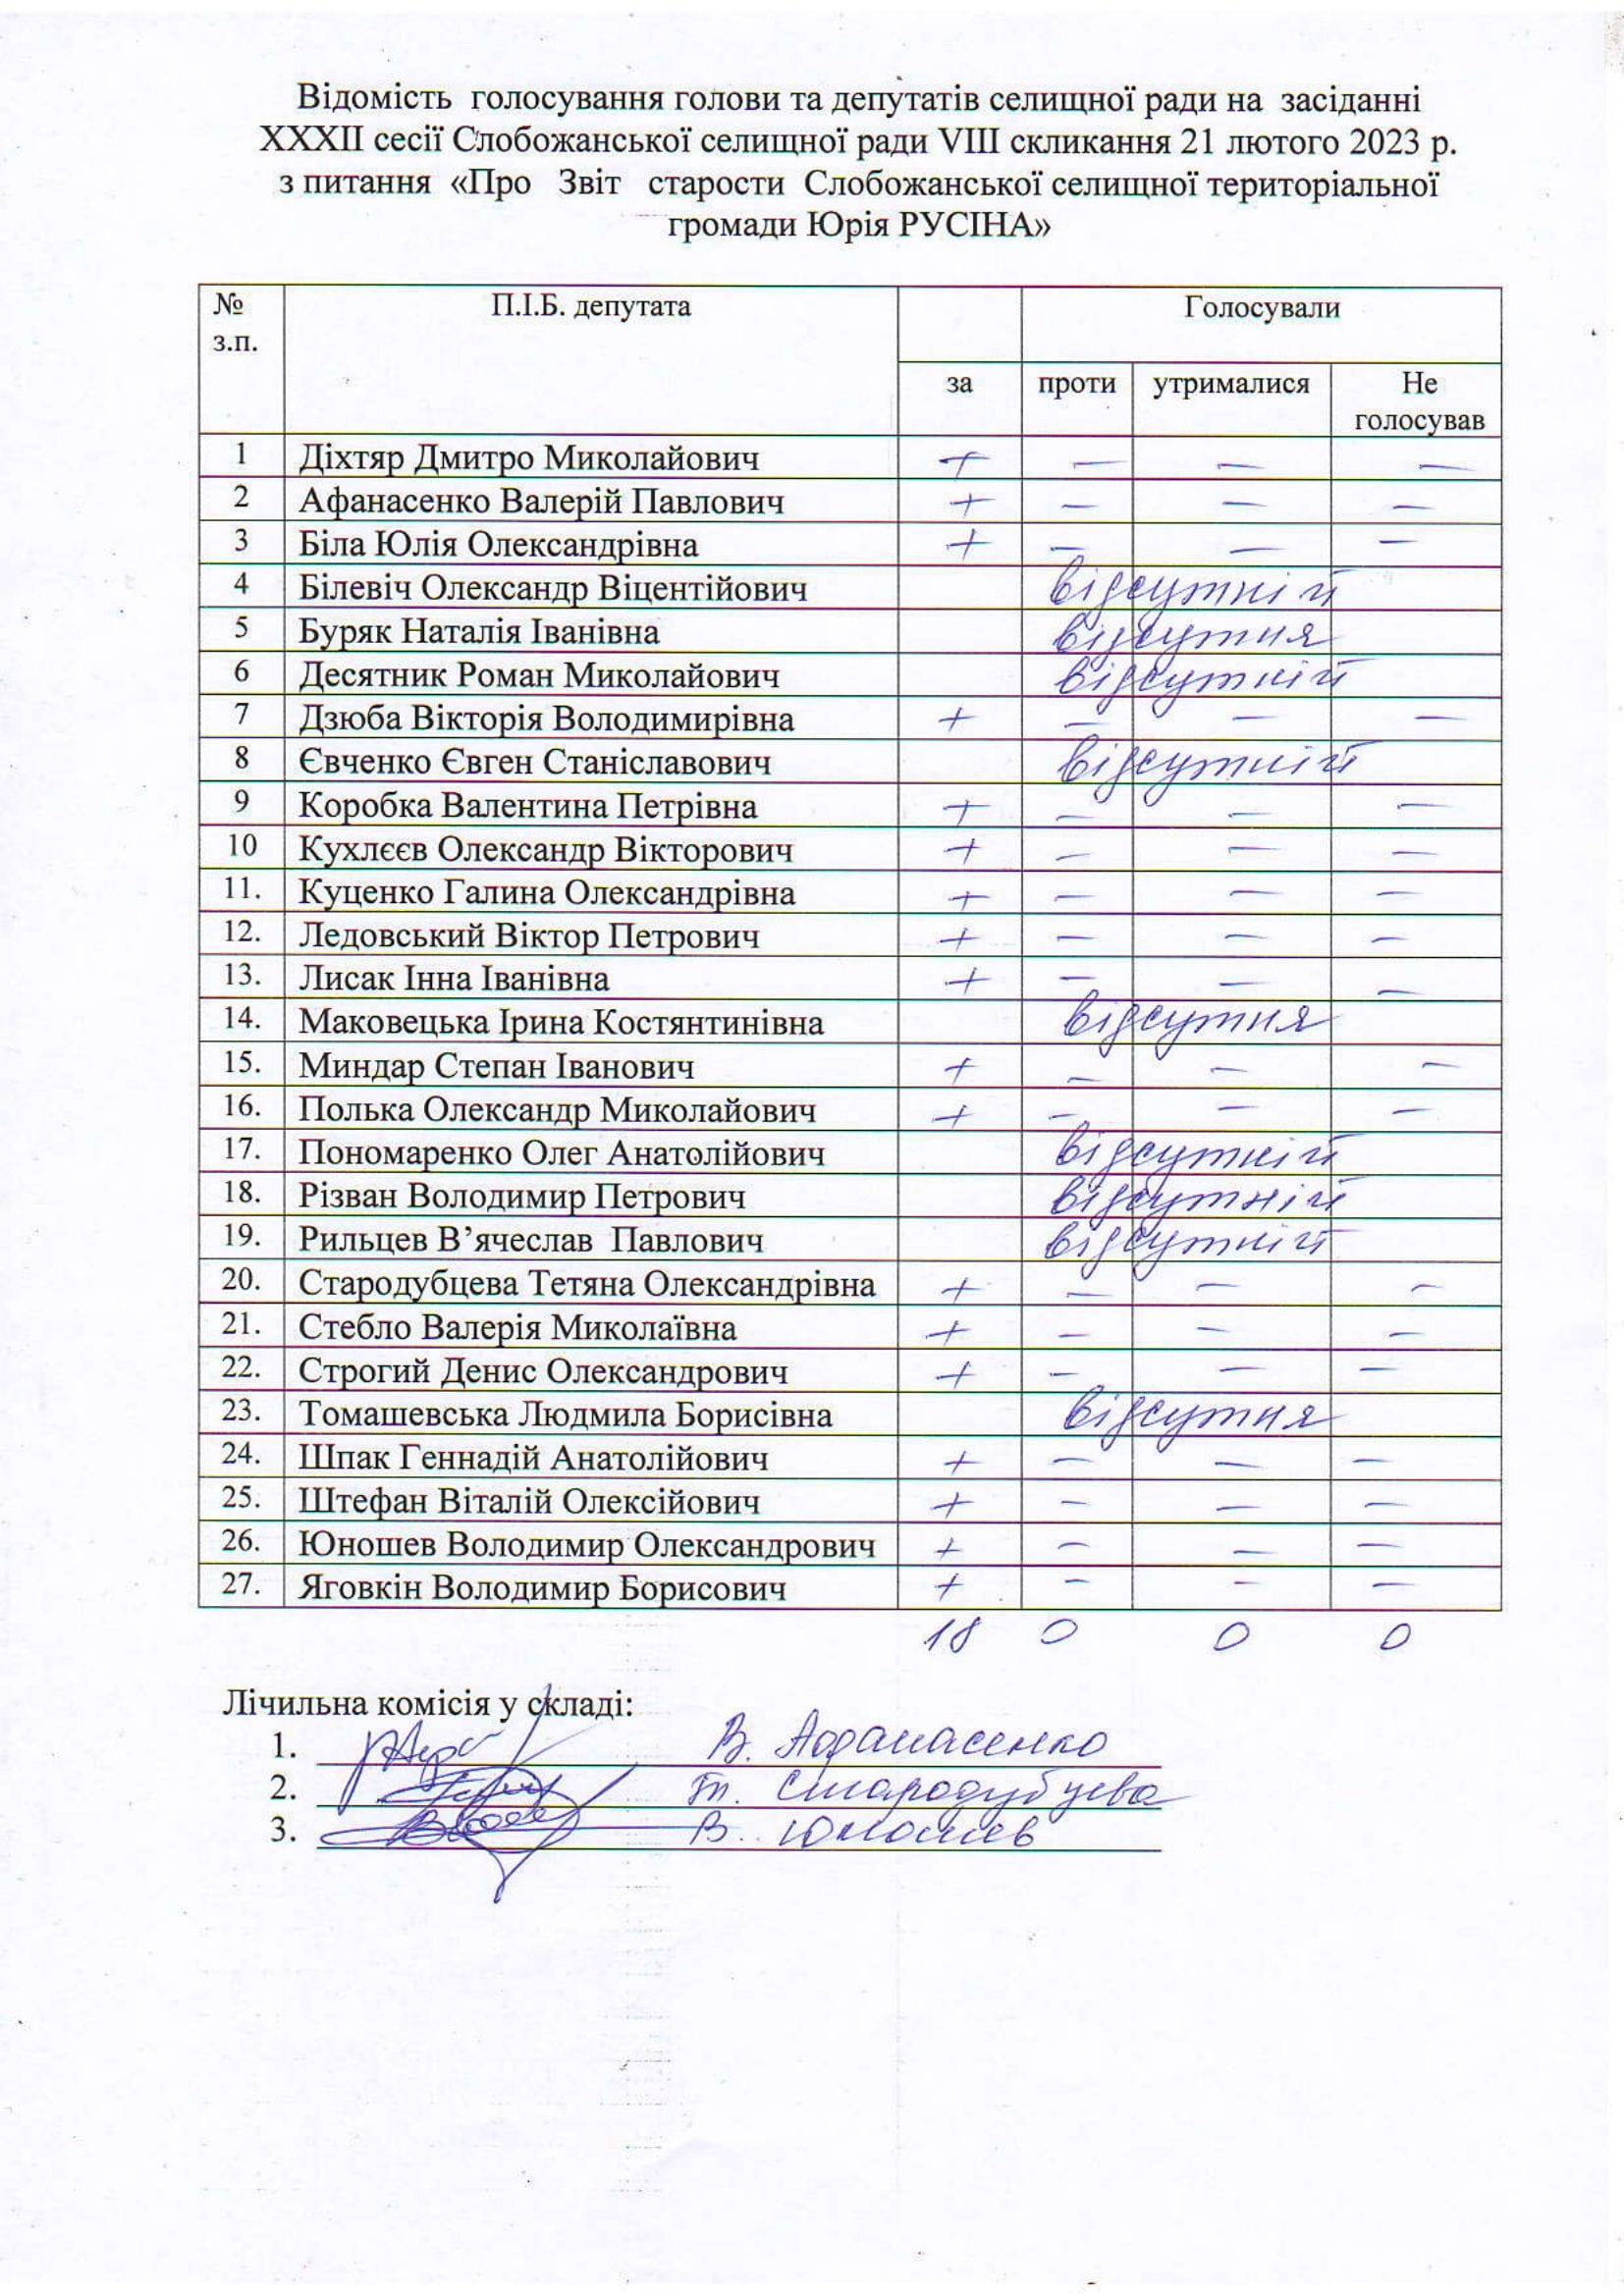 Відомість голосування голови та депутатів селищної ради на засіданні
XXXII сесії Слобожанської селищної ради VIII скликання 21 лютого 2023 р.
з питання «Про Звіт старости Слобожанської селищної територіальної
громади Юрія РУСІНА»
№ з.п. П.І.Б. депутата Голосували
за проти утрималися Не голосував
1 Діхтяр Дмитро Миколайович + — — —
2 Афанасенко Валерій Павлович + — — —
3 Біла Юлія Олександрівна + — — —
4 Білевіч Олександр Віцентійович відсутній
5 Буряк Наталія Іванівна відсутня
6 Десятник Роман Миколайович відсутній
7 Дзюба Вікторія Володимирівна + — — —
8 Євченко Євген Станіславович відсутній
9 Коробка Валентина Петрівна + — — —
10 Кухлєєв Олександр Вікторович + — — —
11. Куценко Галина Олександрівна + — — —
12. Ледовський Віктор Петрович + — — —
13. Лисак Інна Іванівна + — — —
14. Маковецька Ірина Костянтинівна відсутня
15. Миндар Степан Іванович + — — —
16. Полька Олександр Миколайович + — — —
17. Пономаренко Олег Анатолійович відсутній
18. Різван Володимир Петрович відсутній
19. Рильцев В’ячеслав Павлович відсутній
20. Стародубцева Тетяна Олександрівна + — — —
21. Стебло Валерія Миколаївна + — — —
22. Строгий Денис Олександрович + — — —
23. Томашевська Людмила Борисівна відсутня
24. Шпак Геннадій Анатолійович + — — —
25. Штефан Віталій Олексійович + — — —
26. Юношев Володимир Олександрович + — — —
27. Яговкін Володимир Борисович + — — —
18 0 0 0
Лічильна комісія у складі:
1. В. Афанасенко
2. Т. Стародубцева
3. В. Юношев